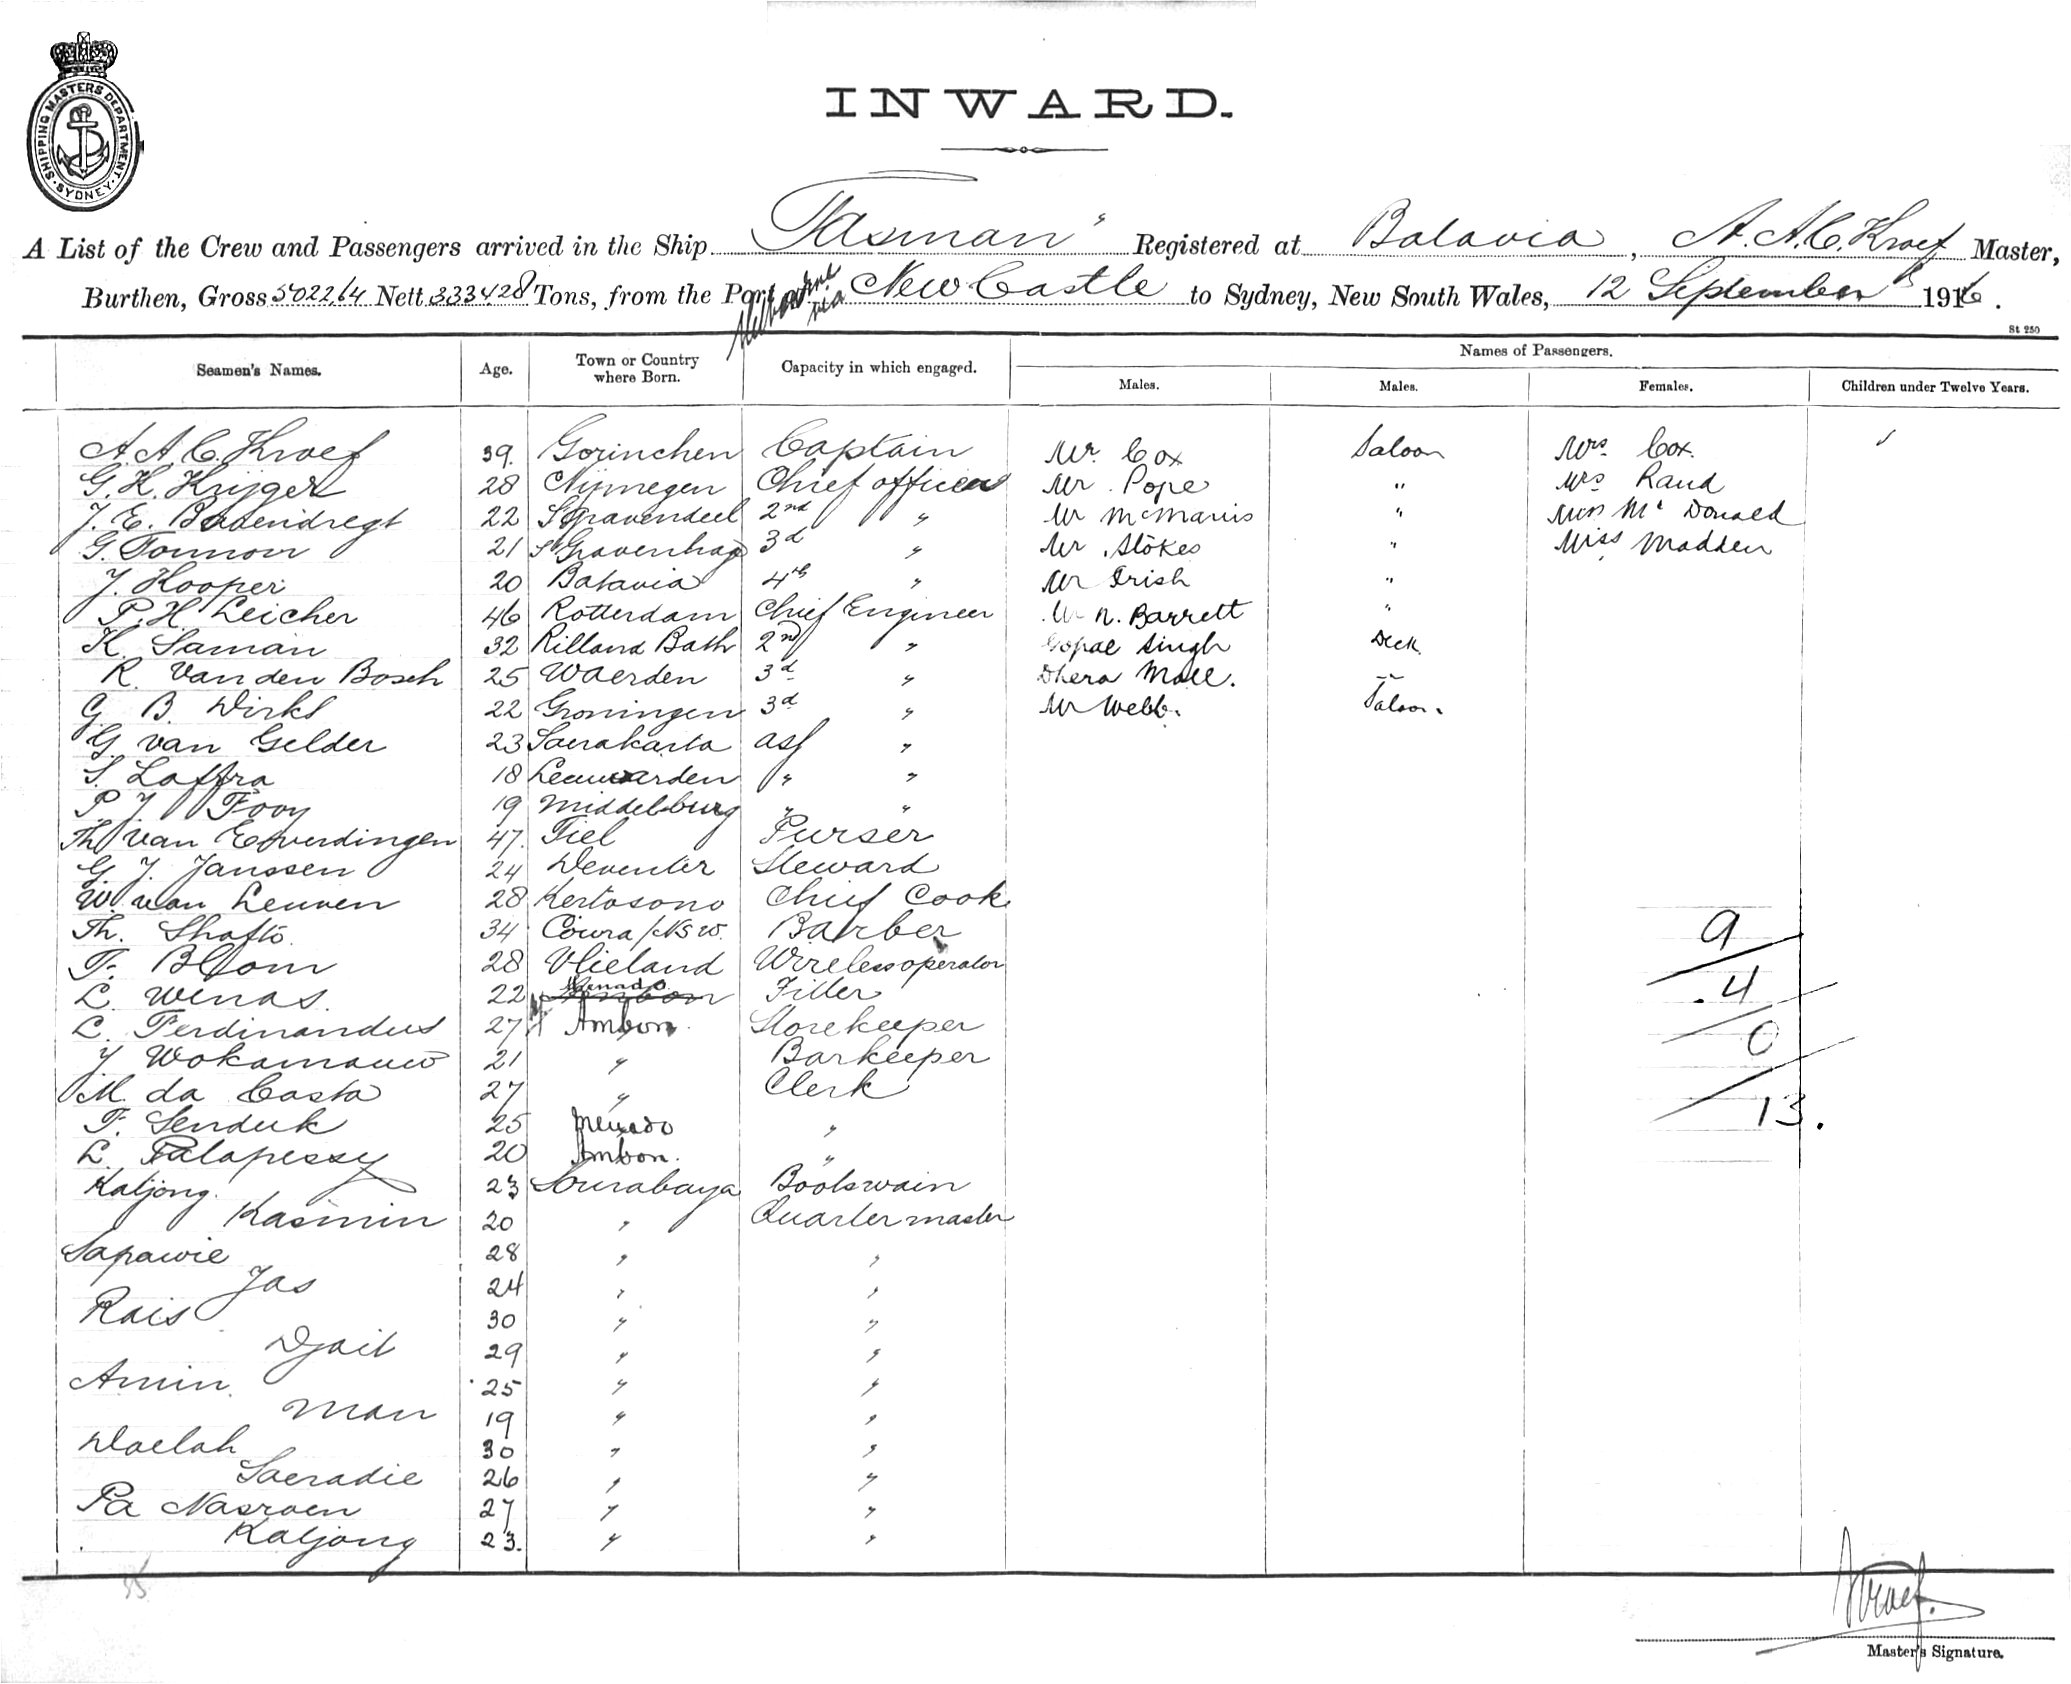 SHIPPING MASTERS DEPARTMENT. SYDNEY
INWARD.
A List of the Crew and Passengers arrived in the Ship "Tasman" Registered at Batavia, A. A. C. Kroef Master,
Burthen, Gross 502264 Nett 333428 Tons, from the Port Melbourne via New Castle to Sydney, New South Wales, 12 September 1916.
St 250
Seamen's Names. Age. Town or Country where Born. Capacity in which engaged. Names of Passengers.
Males. Males. Females. Children under Twelve Years.
A. A. C. Kroef 39. Gorinchen Captain Mr. Cox Saloon Mrs. Cox.
G. H. Krijger 28 Nijmegen Chief officer Mr. Pope " Mrs Rand
J. E. Barendregt 22 S Gravendeel 2nd " Mr McManis " Mrs Mc Donald
G. Tonnon 21 s Gravenhage 3d " Mr. Stokes " Miss Madden
J. Hooper 20 Batavia 4th " Mr Irish "
P. H. Leicher 46 Rotterdam Chief Engineer Mr N. Barrett "
K. Saman 32 Rilland Bath 2nd " Gopal Singh Deck
R. Van den Bosch 25 Waerden 3d " Dhera Mall. "
G. B. Dirks 22 Groningen 3d " Mr Webb. Saloon.
G. van Gelder 23 Soerakarta ass "
S. Loffra 18 Leeuwarden " "
P. J. Fooy 19 Middelburg " "
Th van Everdingen 47. Tiel Purser
G. J. Janssen 24 Deventer Steward
W. van Leuven 28 Kertosono Chief Cook
Th. Shafto 34 Cowra / NSW. Barber 9
F. Blom 28 Vlieland Wireless operator
L. Wenas. 22 Menado Fitter .4
L. Ferdinandus 27 Ambon. Storekeeper 0
J Wokamauw 21 " Barkeeper
M. da Costa 27 " Clerk
F. Senduk 25 Menado " 13.
L. Palapessy 20 Ambon. "
Kaljong. 23 Sourabaya Bootswain
Kasmin 20 " Quartermaster
Sapawie 28 " "
Jas 24 " "
Rais 30 " "
Djait 29 " "
Amin. 25 " "
Man 19 " "
Doelah 30 " "
Saeradie 26 " "
Pa Nasroen 27 " "
Kaljong 23. " "
35
Kroef.
Master's Signature.